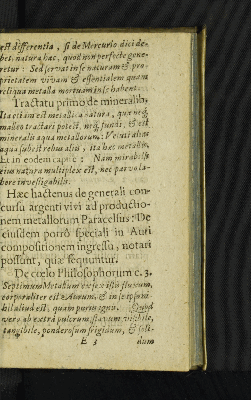 est differentia, si de Mercurio dici debet,
natura hæc, quod non perfecte generetur:
Sed servat in se naturam & proprietatem
vivam & essentialem quam
reliqua metalla mortuam in se habent.
Tractatu primo de mineralib.
Ita etiam est metallica natura, quæ neq;
malleo tractari potest, neq; fundi, & est
mineralis aqua metallorum. Veluti alias
aqua subest rebus aliis, ita hæc metallis.
Et in eodem capite: Nam mirabilis
eius natura multiplex est, nec parvo labore
investigabilis.
Hæc hactenus de generali concursu
argenti vivi ad productionem
metallorum Paracelsus: De
eiusdem porrò speciali in Auri
compositionem ingressu, notari
possunt, quæ sequuntur.
De cœlo Philosophorum c. 3.
Septimum Metallum ex sex istis fluxum,
corporaliter est Aurum, & in se ipso nihil
aliud est, quam purus ignis. Quod
vero ab extra pulcrum, flavum visibile,
tangibile, ponderosum frigidum, & soli-
E 3 dum